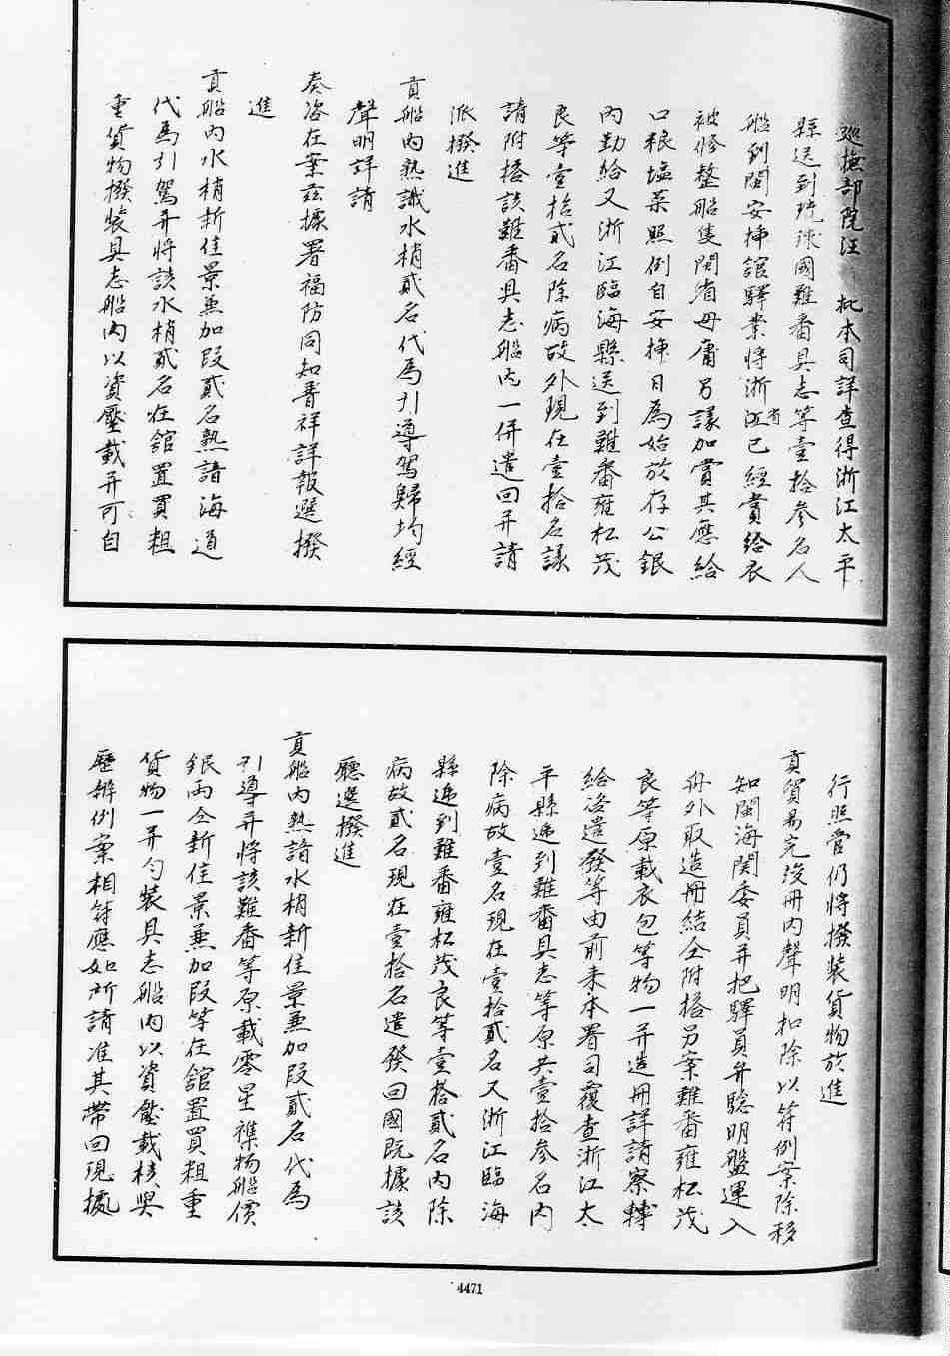 巡撫部院汪 批本司詳查得浙江太平
縣送到琉球國難番具志等壹拾參名人
船到閩安揷館驛業將浙江省已經賞給衣
被修整船隻閩省毋庸另議加賞其應給
口粮塩菜照例自安揷日為始於存公銀
內動給又浙江臨海縣送到難番雍松茂
良等壹拾貳名除病故外現在壹拾名議
請附搭該難番具志船內一併遣回并請
派撥進
貢船內熟識水梢貳名代為引導駕歸均經
聲明詳請
奏咨在案茲據署福防同知普祥詳報選撥
進
貢船內水梢新佳景兼加段貳名熟諳海道
代為引駕并將該水梢貳名在舘置買粗
重貨物撥裝具志船內以資壓載并可自
行照管仍將撥裝貨物於進
貢貿易完竣冊內聲明扣除以符例案除移
知閩海関委員并把驛員弁驗明盤運入
舟外取造冊結仝附搭另案難番雍松茂
良等原載衣包等物一并造冊詳請察轉
給咨遣發等由前來本署司覆查浙江太
平縣递到難番具志等原共壹拾參名內
除病故壹名現在壹拾貳名又浙江臨海
縣递到難番雍松茂良等壹拾貳名內除
病故貳名現在壹拾名遣發回國既據該
廳選撥進
貢船內熟諳水梢新佳景兼加段貳名代為
引導并將該難番等原載零星襍物船價
銀両仝新佳景兼加段等在舘置買粗重
貨物一并勻裝具志船內以資壓載核與
歷辦例案相符應如所請准其帶回現據
4471